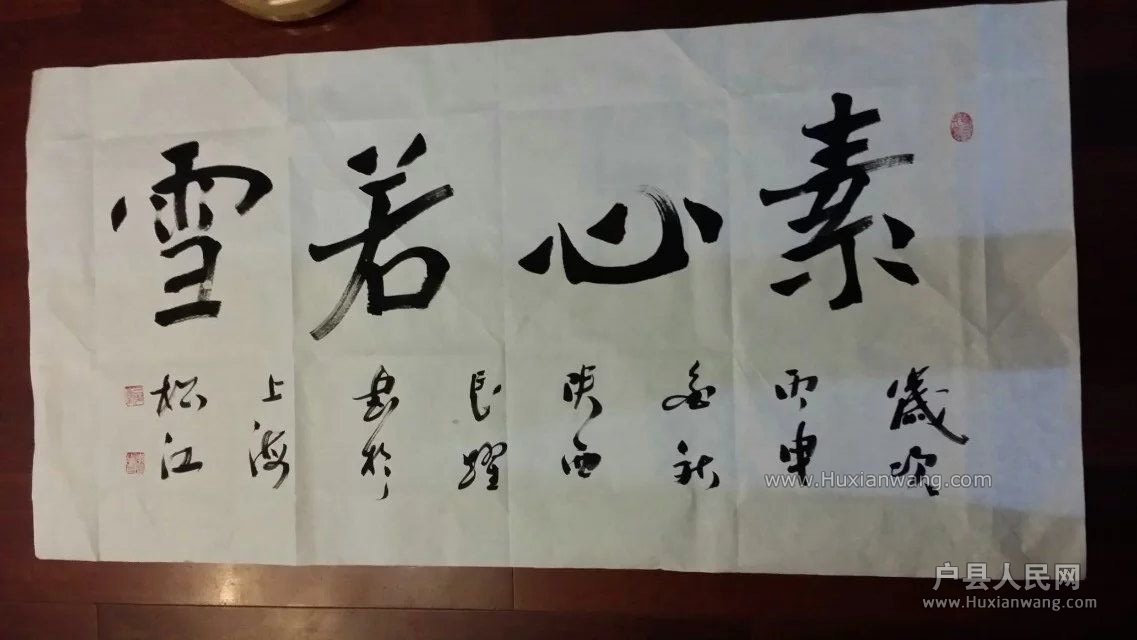 素心若雪
歲次
丙申
金秋
陕西
長躍
書於
上海
松江
www.Huxianwang.com
户县人民网
www.Huxianwang.com